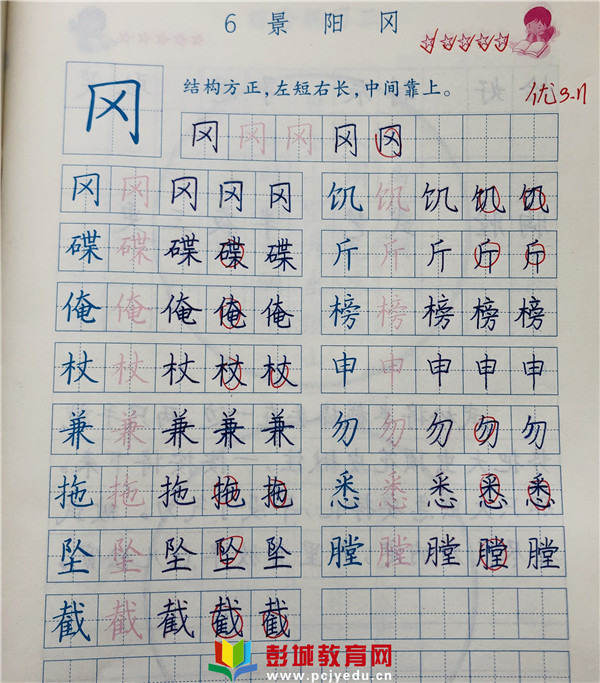 6 景阳冈
冈 结构方正，左短右长，中间靠上。 优 3.11
冈 冈 冈 冈 冈
冈 冈 冈 冈 冈 饥 饥 饥 饥 饥
碟 碟 碟 碟 碟 斤 斤 斤 斤 斤
俺 俺 俺 俺 俺 榜 榜 榜 榜 榜
杖 杖 杖 杖 杖 申 申 申 申 申
兼 兼 兼 兼 兼 勿 勿 勿 勿 勿
拖 拖 拖 拖 拖 悉 悉 悉 悉 悉
坠 坠 坠 坠 坠 膛 膛 膛 膛 膛
截 截 截 截 截
彭城教育网
www.pcjyedu.cn